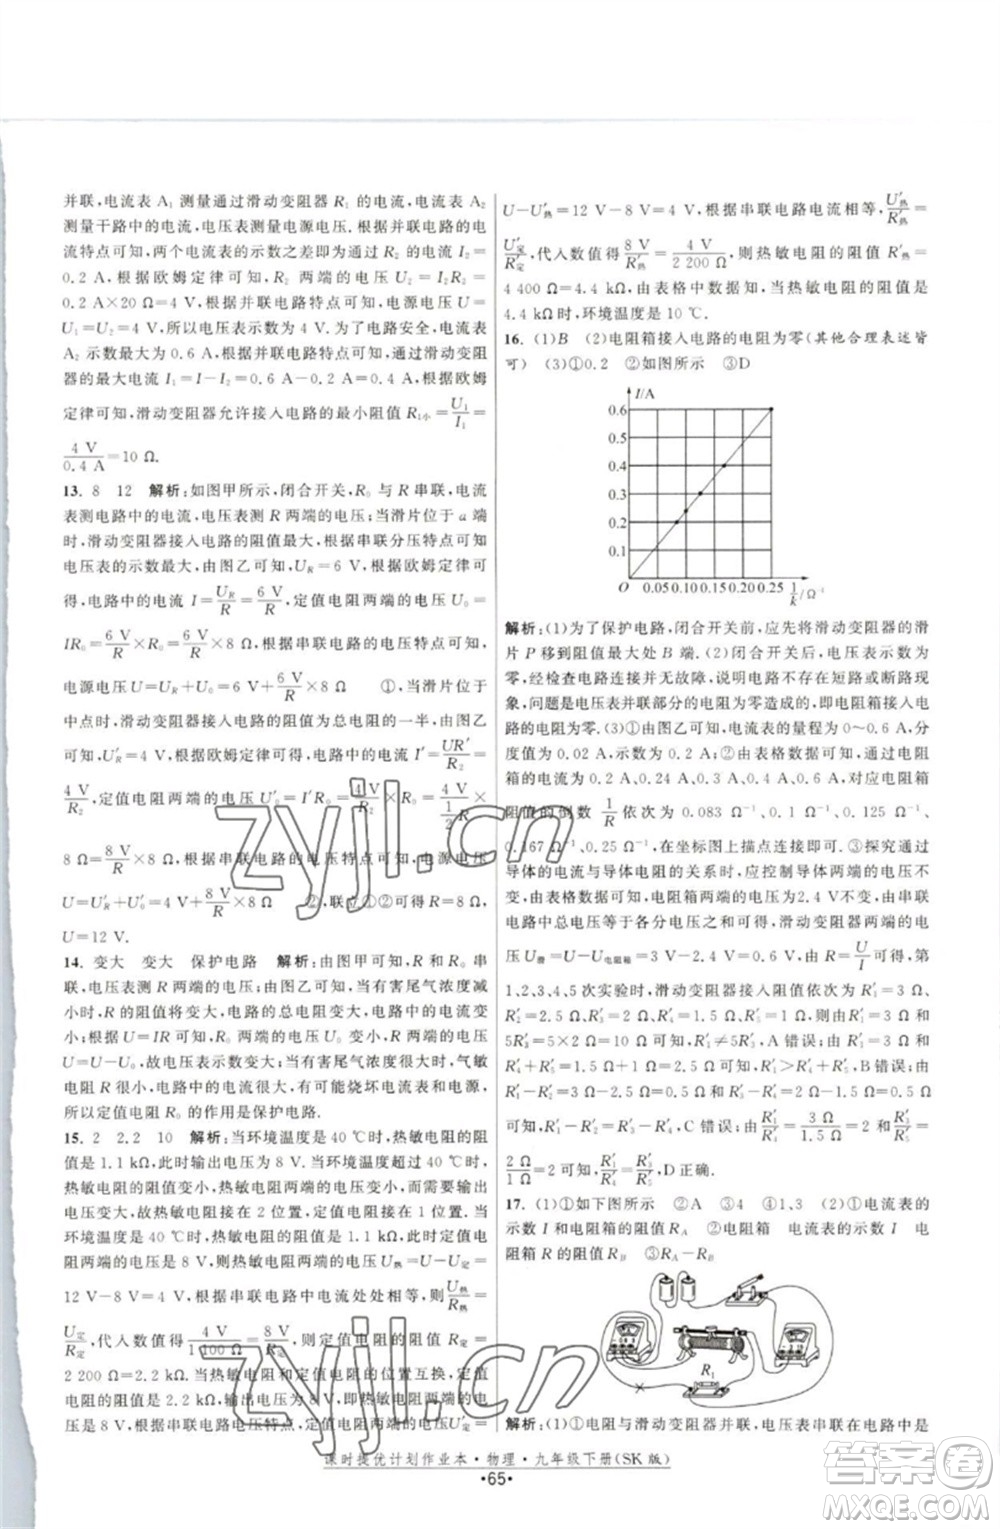 并联,电流表 A₁ 测量通过滑动变阻器 R₁ 的电流,电流表 A₂
测量干路中的电流,电压表测量电源电压. 根据并联电路的电
流特点可知,两个电流表的示数之差即为通过 R₂ 的电流 I₂=
0.2 A,根据欧姆定律可知,R₂ 两端的电压 U₂=I₂R₂=
0.2 A×20 Ω=4 V,根据并联电路特点可知,电源电压 U=
U₁=U₂=4 V,所以电压表示数为 4 V. 为了电路安全,电流表
A₂ 示数最大为 0.6 A,根据并联电路特点可知,通过滑动变阻
器的最大电流 I₁=I-I₂=0.6 A-0.2 A=0.4 A,根据欧姆
定律可知,滑动变阻器允许接入电路的最小阻值 R₁小=U₁/I₁=
4 V/0.4 A=10 Ω.
13. 8 12 解析:如图甲所示,闭合开关,R₀ 与 R 串联,电流
表测电路中的电流,电压表测 R 两端的电压;当滑片位于 a 端
时,滑动变阻器接入电路的阻值最大,根据串联分压特点可知
电压表的示数最大,由图乙可知,U_R=6 V,根据欧姆定律可
得,电路中的电流 I=U_R/R=6 V/R,定值电阻两端的电压 U₀=
IR₀=6 V/R×R₀=6 V/R×8 Ω,根据串联电路的电压特点可知,
电源电压 U=U_R+U₀=6 V+6 V/R×8 Ω ①,当滑片位于
中点时,滑动变阻器接入电路的阻值为总电阻的一半,由图乙
可知,U′_R=4 V,根据欧姆定律可得,电路中的电流 I′=UR′/R₂=
4 V/R₂,定值电阻两端的电压 U′₀=I′R₀=4 V/R₂×R₀=4 V/(1/2 R)×
8 Ω=8 V/R×8 Ω,根据串联电路的电压特点可知,电源电压
U=U′_R+U′₀=4 V+8 V/R×8 Ω ②,联立①②可得 R=8 Ω,
U=12 V.
14. 变大 变大 保护电路 解析:由图甲可知,R 和 R₀ 串
联,电压表测 R 两端的电压;由图乙可知,有害尾气浓度减小
时,R 的阻值将变大,电路的总电阻变大,电路中的电流变
小,根据 U=IR 可知,R₀ 两端的电压 U₀ 变小,R 两端的电压
U=U-U₀,故电压表示数变大;当有害尾气浓度很大时,气敏
电阻 R 很小,电路中的电流很大,有可能烧坏电流表和电源,
所以定值电阻 R₀ 的作用是保护电路.
15. 2 2.2 10 解析:当环境温度是 40 ℃时,热敏电阻的阻
值是 1.1 kΩ,此时输出电压为 8 V. 当环境温度大于 40 ℃时,
热敏电阻的阻值变小,热敏电阻两端的电压变小,而输出电压
变大,故热敏电阻接在 2 位置,定值电阻接在 1 位置. 当
环境温度为 40 ℃时,热敏电阻的阻值是 1.1 kΩ,此时定值
电阻两端的电压是 8 V,则热敏电阻两端的电压 U热=U-U定=
12 V-8 V=4 V,根据串联电路中电流处处相等,则U热/R热=
U定/R定,代入数值得4 V/1 100 Ω=8 V/R定,则定值电阻的阻值 R定=
2 200 Ω=2.2 kΩ. 将热敏电阻和定值电阻的位置互换,
热敏电阻在 1 位置,定值电阻在 2 位置,当输出电压为 8 V
时,电压为 8 V,根据串联电路电压特点,定值电阻两端的电压 U′定=
U-U′热=12 V-8 V=4 V,根据串联电路电流相等,U′热/R′热=
U′定/R定,代入数值得8 V/R′热=4 V/2 200 Ω,则热敏电阻的阻值 R′热=
4 400 Ω=4.4 kΩ,由表格中数据知,当热敏电阻的阻值是
4.4 kΩ时,环境温度是 10 ℃.
16. (1)B (2)电阻箱接入电路的电阻为零(其他合理表述皆
可) (3)①0.2 ②如图所示 ③D
I/A
0.6
0.5
0.4
0.3
0.2
0.1
O 0.05 0.10 0.15 0.20 0.25 1/k/Ω⁻¹
解析:(1)为了保护电路,闭合开关前,应先将滑动变阻器的滑
片 P 移到阻值最大处 B 端. (2)闭合开关后,电压表示数为
零,经检查电路连接无故障,说明电路中不存在短路或断路现
象,问题是与电压表并联部分的电阻为零造成的,即电阻箱接入电
路的电阻为零. (3)①由图乙可知,电流表的量程为 0~0.6 A,分
度值为 0.02 A,示数为 0.2 A;②由表格数据可知,通过电阻
箱的电流为 0.2 A、0.24 A、0.3 A、0.4 A、0.6 A,对应电阻箱
阻值的倒数 1/R 依次为 0.083 Ω⁻¹、0.1 Ω⁻¹、0.125 Ω⁻¹、
0.167 Ω⁻¹、0.25 Ω⁻¹,在坐标图上描点连线即可. ③探究通过
导体的电流与导体电阻的关系时,应控制导体两端的电压不
变,由表格数据可知,电阻箱两端的电压为2.4 V不变,由串联
电路中总电压等于各分电压之和可得,滑动变阻器两端的电
压 U滑=U-U电阻箱=3 V-2.4 V=0.6 V,由 R=U/I可得,第
1、2、3、4、5次实验时,滑动变阻器接入阻值为 R′₁=3 Ω、R′₂
=2.5 Ω、R′₃=2 Ω、R′₄=1.5 Ω、R′₅=1 Ω,则 5R′₅=5 Ω、
5R′₃=5×2 Ω=10 Ω可知,R′₁≠5R′₅,A 错误;由 R′₁-R′₂
=3 Ω-2.5 Ω=0.5 Ω、R′₄-R′₅=1.5 Ω-1 Ω=0.5 Ω,B 错误;由
R′₁-R′₄=3 Ω-1.5 Ω=1.5 Ω、R′₂-R′₅=2.5 Ω-1 Ω=
1.5 Ω可知,R′₁-R′₄=R′₂-R′₅,C 错误;由R′₁/R′₄=3 Ω/1.5 Ω=2、R′₃/R′₅=
2 Ω/1 Ω=2可知,R′₁/R′₄=R′₃/R′₅,D 正确.
17. (1)①如下图所示 ②A ③4 ④1、3 (2)①电流表的
示数 I 和电阻箱的阻值 R_A ②电阻箱 电流表的示数 I 电
阻箱 R 的阻值 R_B ③R_A-R_B
R₁
解析:(1)①电阻与滑动变阻器并联,电压表在电路中是
课时提优计划作业本·物理·九年级下册(SK 版)
·65·
zyjl.cn
zyjl.cn
答案圈
MXQE.COM